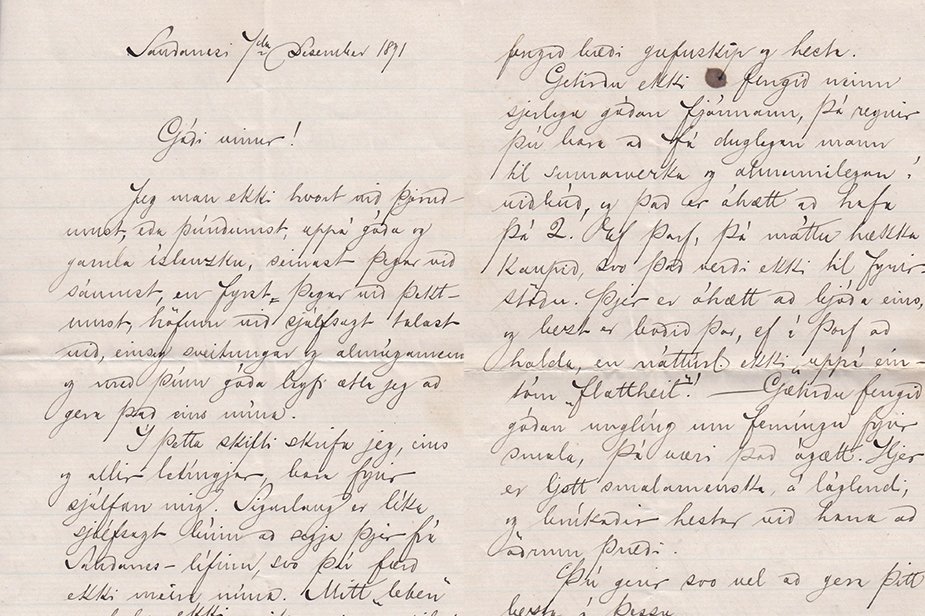 Sandanesi 7da Desember 1891
Góði vinur!
Jeg man ekki hvort við þjeruð-
umst, eða þúuðumst, uppá góða og
gamla íslenzku, seinast þegar við
sáumst, en fyrst þegar við þekt-
umst, höfum við sjálfsagt talast
við, eins og sveitungar og almúgamenn
og með þínu góða leyfi ætla jeg að
gera það eins núna.
Í þetta skifti skrifa jeg, eins
og allir letingjar, bara fyrir
sjálfan mig. Sigurlaug er líka
sjálfsagt búin að segja þjer frá
Sandanes-lífinu, svo þú færð
ekki meira núna. Mitt "leben"
ekki
fengið bæði gufuskip og hesta.
Getirðu ekki fengið neinn
sjerlega góðan fjármann, þá reynir
þú bara að fá duglegan mann
til sumarverka og almennilegan í
viðbúð, og það er óhætt að hafa
þá 2. Ef þarf, þá máttu hækka
kaupið, svo það verði ekki til fyrir-
stöðu. Þjer er óhætt að bjóða eins,
og bezt er boðið þar, ef á þarf að
halda, en náttúrl. ekki uppá ein-
tóm "flattheit". — Gætirðu fengið
góðan ungling um fermingu fyrir
smala, þá væri það ágætt. Hjer
er ljett smalamenska, á láglendi,
og brúkaðir hestar við hana að
öðrum þræði.
Þú gerir svo vel að gera þitt
bezta í þessu